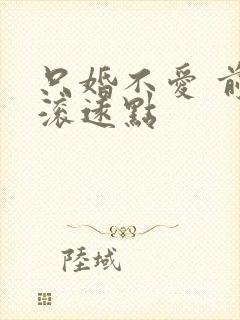 只婚不愛 前
滾遠點
陸域